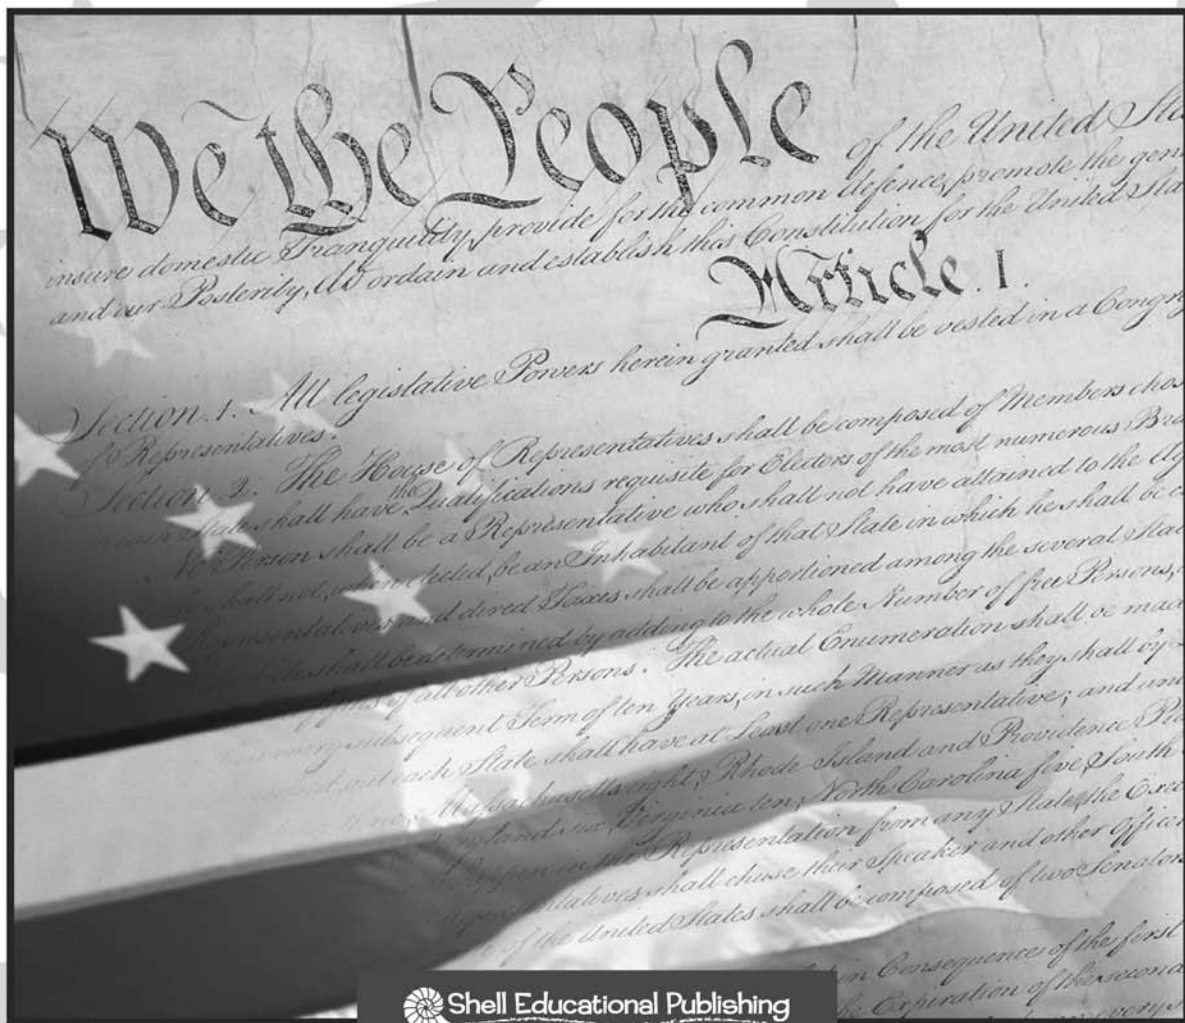 We the People of the United Sta
insure domestic Tranquility, provide for the common defence, promote the gen
and our Posterity, do ordain and establish this Constitution for the United Sta
Article. I.
Section. 1. All legislative Powers herein granted shall be vested in a Congr
of Representatives.
Section. 2. The House of Representatives shall be composed of Members chos
State shall have the Qualifications requisite for Electors of the most numerous Bra
No Person shall be a Representative who shall not have attained to the Ag
shall not, when elected, be an Inhabitant of that State in which he shall be c
and direct Taxes shall be apportioned among the several Stat
shall be determined by adding to the whole Number of free Persons,
of all other Persons. The actual Enumeration shall be mad
subsequent Term of ten Years, in such Manner as they shall by
each State shall have at Least one Representative; and unt
Massachusetts eight, Rhode-Island and Providence Pla
six, Virginia ten, North Carolina five, South
in the Representation from any State, the Exec
shall chuse their Speaker and other Officer
of the United States shall be composed of two Senators
in Consequence of the first
Expiration of the second
Shell Educational Publishing